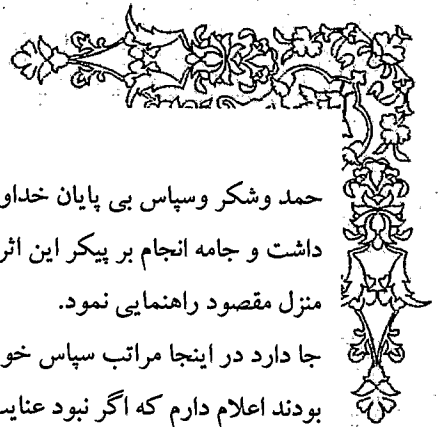 حمد وشکر وسپاس بی پایان خداو
داشت و جامه انجام بر پیکر این اثر
منزل مقصود راهنمایی نمود.
جا دارد در اینجا مراتب سپاس خو
بودند اعلام دارم که اگر نبود عنایت